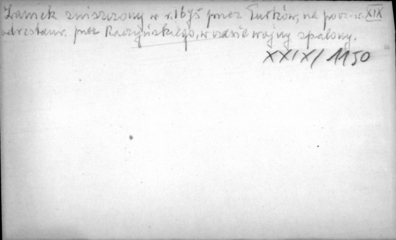 Zamek zniszczony w r. 1675 przez Turków, na pocz. w. XIX
odrestaur. przez Raczyńskiego, w czasie wojny spalony.
XXIX/1150